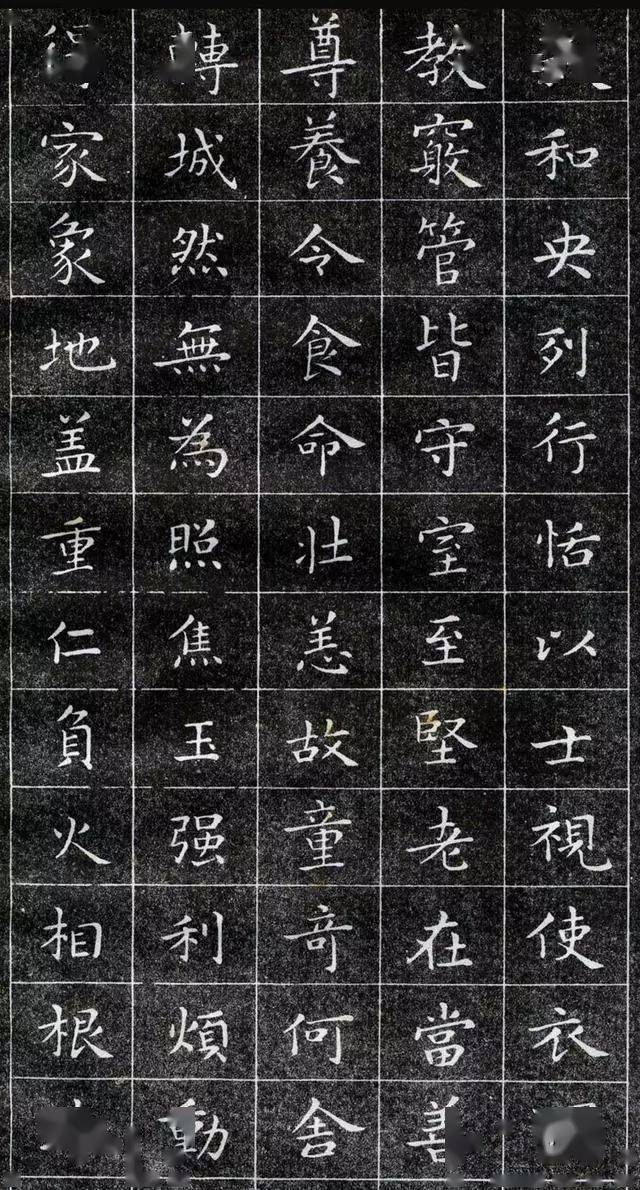 和央列行恬以士視使衣
教管皆守室至堅老在當善
尊養令食命壯恙故童竒何舍
轉城然無為照焦玉强利煩動
家象地盖重仁負火相根